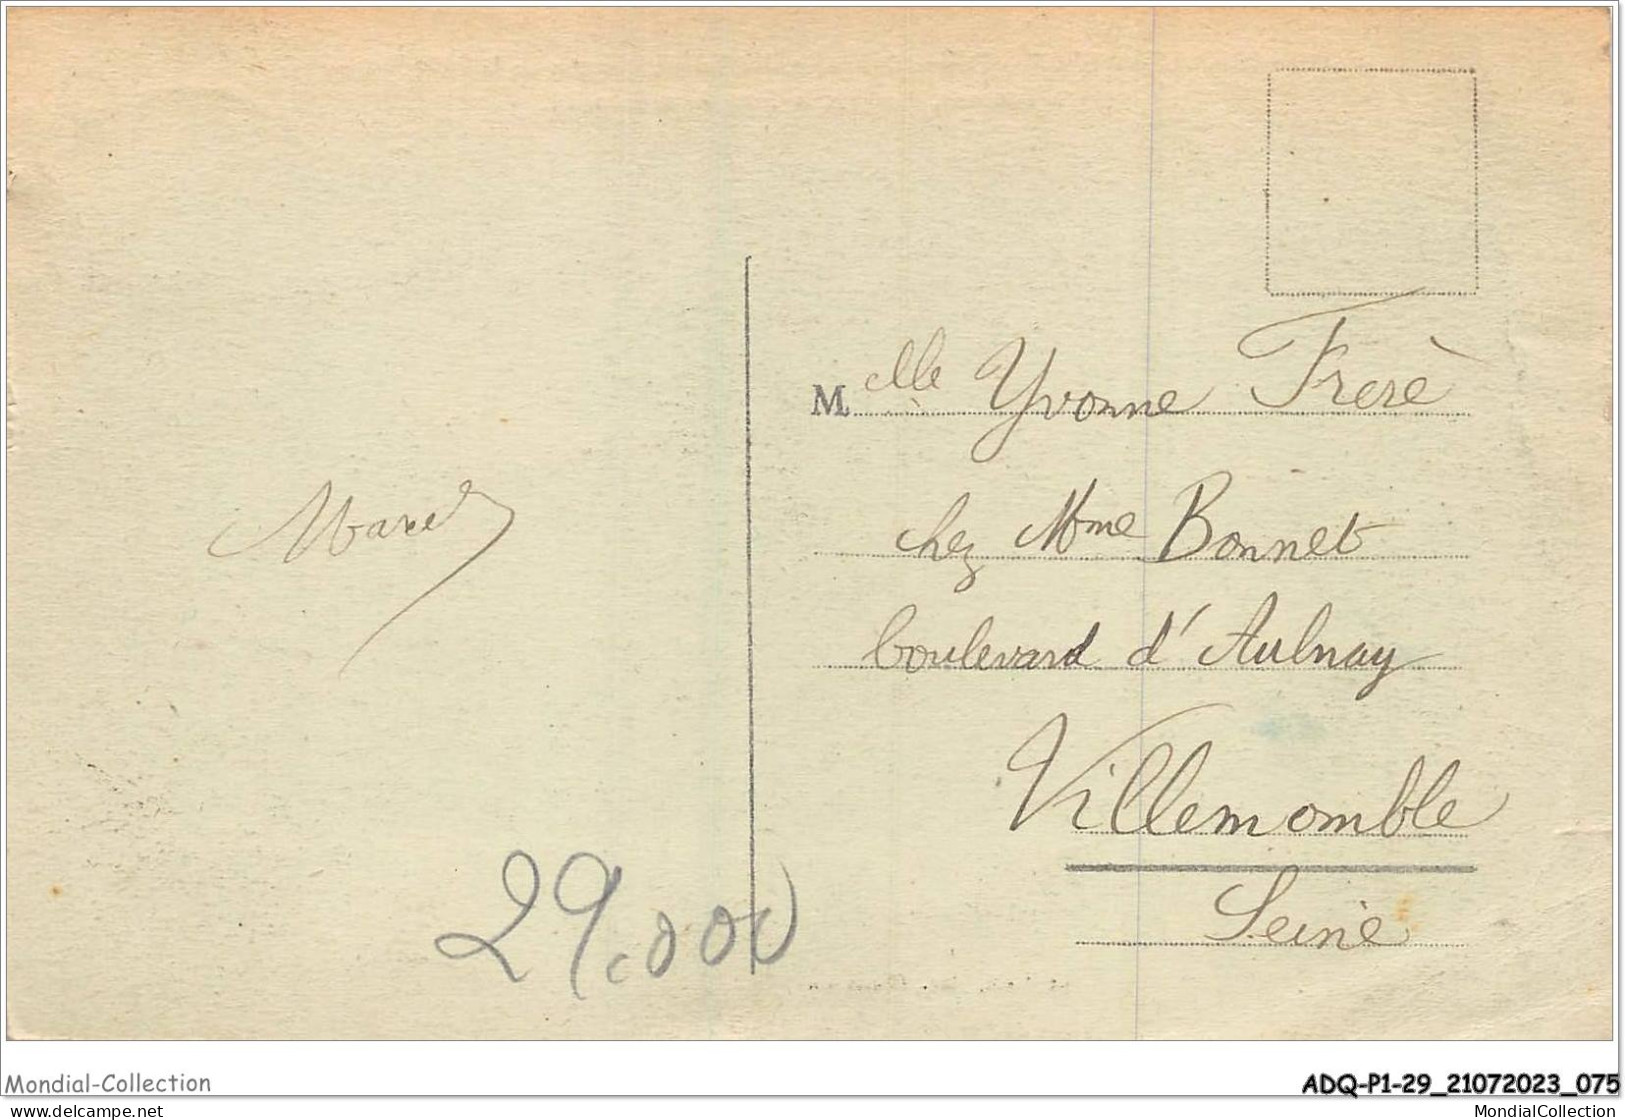 Melle Yvonne Frerè
chez Mme Bonnet
boulevard d'Aulnay
Villemomble
Seine
Marcel
29.000
Mondial-Collection
ADQ-P1-29_21072023_075
www.delcampe.net
MondialCollection